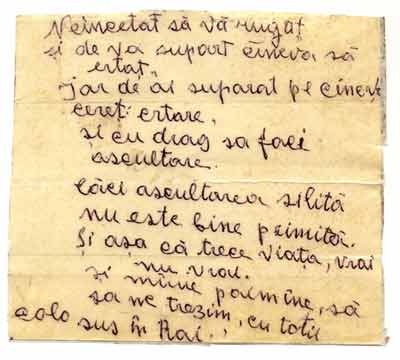 Neincetat să vă rugaț
și de va supart cineva să
ertaț
Jar de ai suparat pe cineva
cereț ertare,
și cu drag sa faci
ascultare.
Căci ascultarea silită
nu este bine primită.
Și așa că trece Viața, vrai
nu vrai.
și mîine poimîine, să
sa ne trezim, cu toții
acolo sus în Rai..